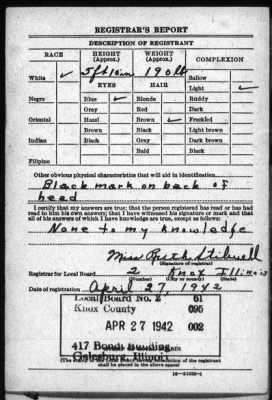 REGISTRAR'S REPORT
DESCRIPTION OF REGISTRANT
RACE HEIGHT (Approx.) WEIGHT (Approx.) COMPLEXION
5 ft 10 in 190 lb
White ✓ Sallow
EYES HAIR Light ✓
Negro Blue ✓ Blonde Ruddy
Gray Red Dark
Oriental Hazel Brown ✓ Freckled
Brown Black Light brown
Indian Black Gray Dark brown
Bald Black
Filipino
Other obvious physical characteristics that will aid in identification
Black mark on back of
head
I certify that my answers are true; that the person registered has read or has had
read to him his own answers; that I have witnessed his signature or mark and that
all of his answers of which I have knowledge are true, except as follows:
None to my knowledge
Miss Ruth Stilwell
(Signature of registrar)
Registrar for Local Board 2 Knox Illinois
(Number) (City or county) (State)
Date of registration April 27, 1942
Local Board No. 2 61
Knox County 095
APR 27 1942 002
417 Bondi Building
Galesburg, Illinois
shall be placed in the above space)